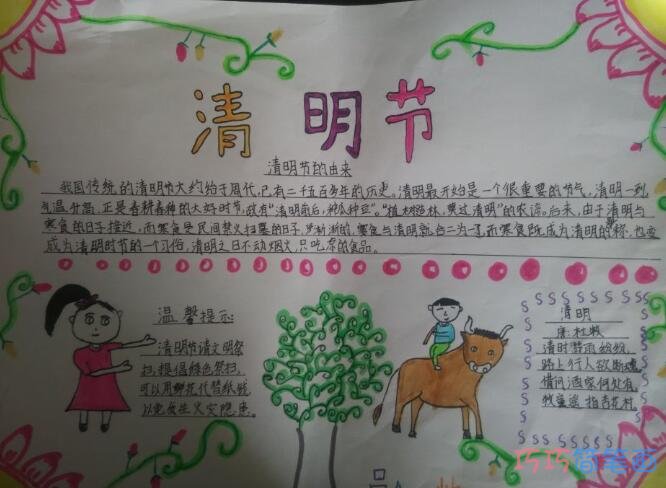 清明节
清明节的由来
我国传统的清明节大约始于周代,已有二千五百多年的历史。清明最开始是一个很重要的节气,清明一到
气温升高,正是春耕春种的大好时节,故有“清明前后,种瓜种豆”。“植树造林,莫过清明”的农谚。后来,由于清明与
寒食的日子接近,而寒食是民间禁火扫墓的日子,渐渐的,寒食与清明就合二为一了,而寒食既成为清明的别称,也变
成为清明时节的一个习俗,清明之日不动烟火,只吃凉的食品。
温馨提示:
清明节请文明祭
扫,提倡绿色祭扫,
可以用鲜花代替纸钱
以免发生火灾隐患。
清明
唐 杜牧
清时节雨纷纷,
路上行人欲断魂
借问酒家何处有,
牧童遥指杏花村
巧巧简笔画